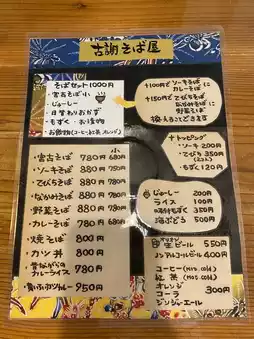 古謝そば屋
そばセット1000円
・宮古そば 小
・じゅーしー
・日替わりおかず
・もずく・お漬物
・お飲物(コーヒー、紅茶、オレンジ)
+100円で ソーキそば
カレーそばに
+150円で てびちそば
なかみそばに
野菜そばに
換えることできます
+トッピング
・ソーキ 200円
・てびち 350円
・もずく 120円
小
・宮古そば 780円 680円
・ソーキそば 880円
・てびちそば 980円
・なかみそば 980円
・野菜そば 980円
・カレーそば 880円
・焼そば 800円
・カツ丼 800円
・昔ながらのカレーライス 780円
950円
じゅーしー 200円
ライス 100円
味付もずく 350円
海ぶどう 500円
オリオン
生ビール 550円
ノンアルコールビール 400円
コーヒー(HOT.cold)
紅茶(HOT.cold)
オレンジ 300
コーラ 円
ジンジャーエール